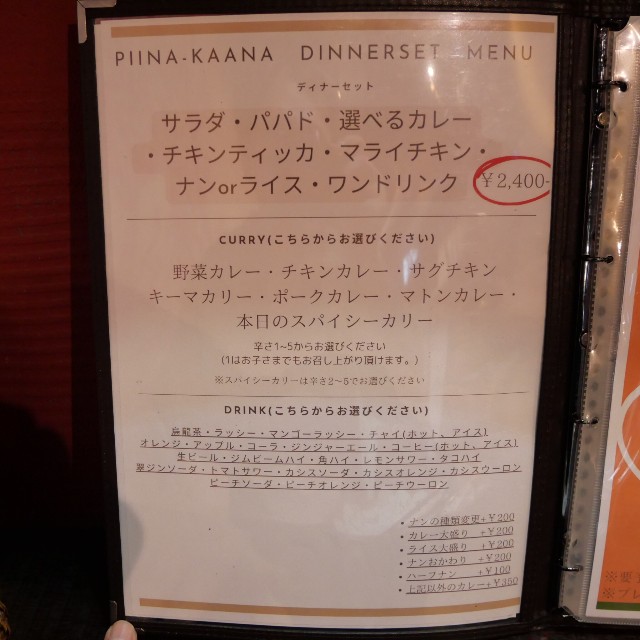 PIINA-KAANA DINNERSET MENU
ディナーセット
サラダ・パパド・選べるカレー
・チキンティッカ・マライチキン・
ナンorライス・ワンドリンク ¥2,400-
CURRY(こちらからお選びください)
野菜カレー・チキンカレー・サグチキン
キーマカリー・ポークカレー・マトンカレー・
本日のスパイシーカリー
辛さ1~5からお選びください
(1はお子さまでもお召し上がり頂けます。)
※スパイシーカリーは辛さ2~5でお選びください
DRINK(こちらからお選びください)
烏龍茶・ラッシー・マンゴーラッシー・チャイ(ホット、アイス)
オレンジ・アップル・コーラ・ジンジャーエール・コーヒー(ホット、アイス)
生ビール・ジムビームハイ・角ハイ・レモンサワー・タコハイ
翠ジンソーダ・トマトサワー・カシスソーダ・カシスオレンジ・カシスウーロン
ピーチソーダ・ピーチオレンジ・ピーチウーロン
• ナンの種類変更+¥200
• カレー大盛り +¥200
• ライス大盛り +¥200
• ナンおかわり +¥200
• ハーフナン +¥100
• 上記以外のカレー+¥350